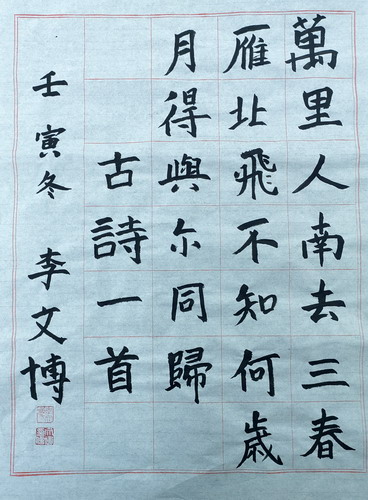 萬里人南去三春
雁北飛不知何歲
月得與尒同歸
古詩一首
壬寅冬 李文博